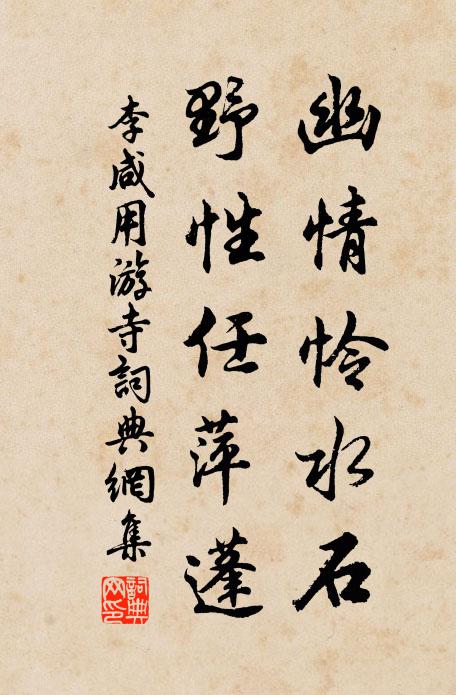 幽情怜水石
野性任萍蓬
李咸用游寺詞典網集
詞典網印